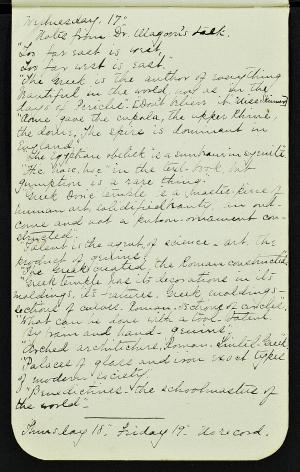 Wednesday, 17th
Notes from Dr. Magoon's talk.
"Too far east is west,
Too far west is east."
"The Greek is the author of everything
beautiful in the world, not as for the
days of Pericles". I Don't believe it
"Rome gave the cupola, the upper third,
the dome; The spire is dominant in
England."
"The Egyptian obelisk is a sunbeam in syenite."
in the text-book, but
gumption is a rare thing."
"Greek Doric temple is a masterpiece of
human art, solidified sanity, an out-
come and not a put-on-ornament con-
structed".
"Talent is the agent of science - art, the
product of genius."
"The Greek created, the Roman constructed."
"Greek temple has its decorations in its
mouldings, its features. Greek mouldings -
sections of curves. Roman sections of circles."
"What can be done with a tool - talent
by mind and hand - genius."
"Arched architecture, Roman. Lintel, Greek.
"Palaces of glass and iron exact types
of modern society.
"Benedictines - the schoolmasters of
the world".
Thursday 18th. Friday 19th. No record.